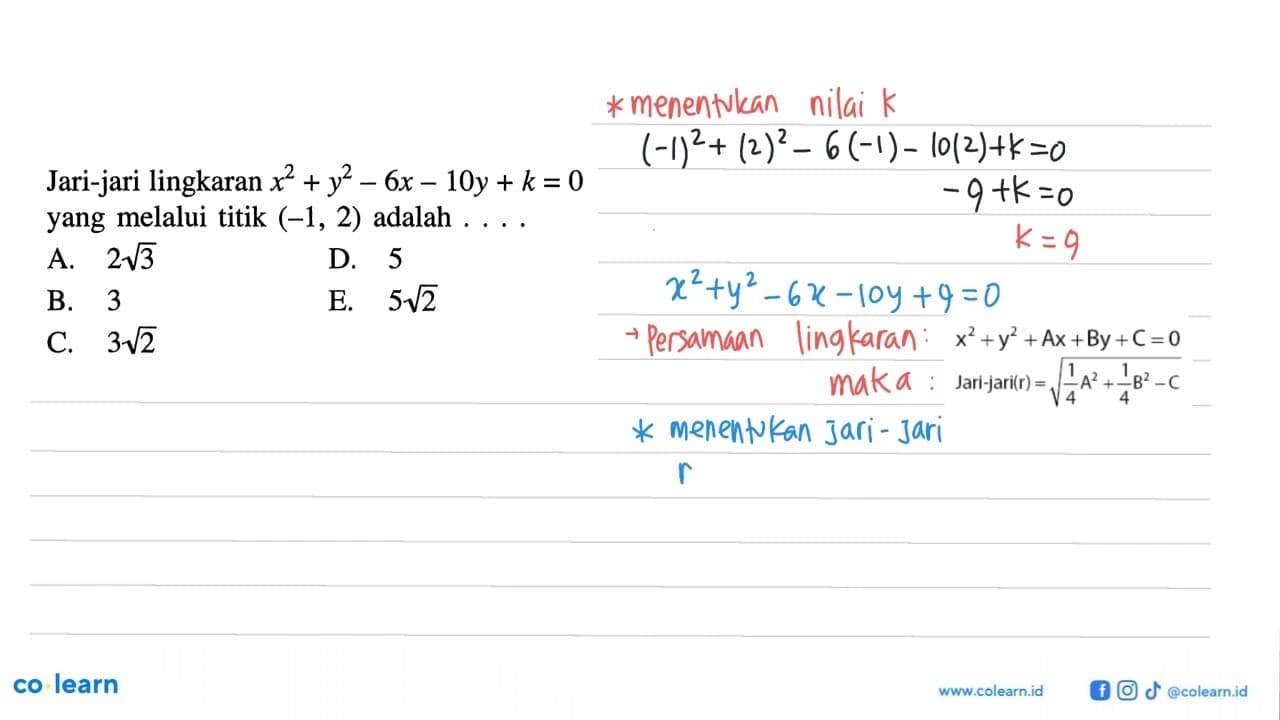 Jari-jari lingkaran x² + y² – 6x – 10y + k = 0
yang melalui titik (–1, 2) adalah . . . .
A. 2√3 D. 5
B. 3 E. 5√2
C. 3√2
* menentukan nilai k
(-1)² + (2)² - 6(-1) - 10(2) + k = 0
-9 + k = 0
k = 9
x² + y² - 6x - 10y + 9 = 0
→ Persamaan lingkaran : x² + y² + Ax + By + C = 0
maka : Jari-jari(r) = √(1/4 A² + 1/4 B² – C)
* menentukan jari-jari
r
co learn
www.colearn.id @colearn.id